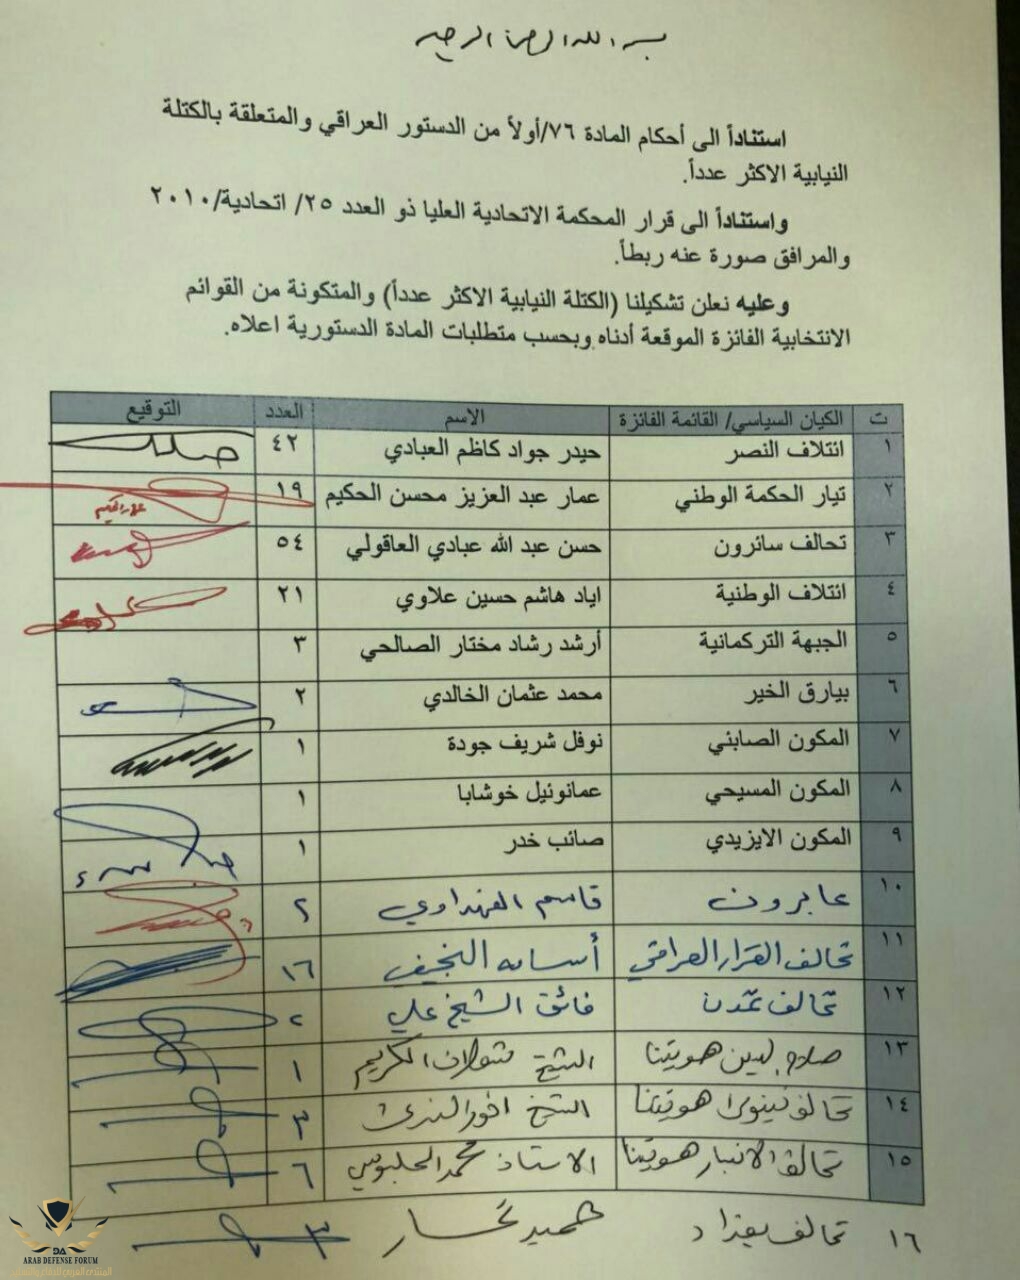 بسم الله الرحمن الرحيم
استناداً الى أحكام المادة ٧٦/أولاً من الدستور العراقي والمتعلقة بالكتلة
النيابية الاكثر عدداً.
واستناداً الى قرار المحكمة الاتحادية العليا ذو العدد ٢٥/ اتحادية/٢٠١٠
والمرافق صورة عنه ربطاً.
وعليه نعلن تشكيلنا (الكتلة النيابية الاكثر عدداً) والمتكونة من القوائم
الانتخابية الفائزة الموقعة أدناه وبحسب متطلبات المادة الدستورية اعلاه.
ت الكيان السياسي/ القائمة الفائزة الاسم العدد التوقيع
١ ائتلاف النصر حيدر جواد كاظم العبادي ٤٢
٢ تيار الحكمة الوطني عمار عبد العزيز محسن الحكيم ١٩
٣ تحالف سائرون حسن عبد الله عبادي العاقولي ٥٤
٤ ائتلاف الوطنية اياد هاشم حسين علاوي ٢١
٥ الجبهة التركمانية أرشد رشاد مختار الصالحي ٣
٦ بيارق الخير محمد عثمان الخالدي ٢
٧ المكون الصابئي نوفل شريف جودة ١
٨ المكون المسيحي عمانوئيل خوشابا ١
٩ المكون الايزيدي صائب خدر ١
١٠ عابرون قاسم الفهداوي ٢
١١ تحالف القرار العراقي أسامه النجيفي ١٦
١٢ تحالف تمدن فائق الشيخ علي ٢
١٣ صلاح الدين هويتنا الشيخ الكريم ١
١٤ تحالف نينوى هويتنا الشيخ ٣
١٥ تحالف الانبار هويتنا الاستاذ محمد الحلبوسي ٦
١٦ تحالف بغداد ٣
ARAB DEFENSE FORUM